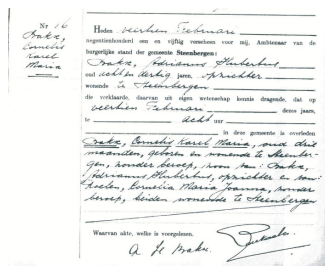 Nr 16
Brakx,
Cornelis
Karel
Maria
Heden veertien Februari
negentienhonderd een en vijftig verscheen voor mij, Ambtenaar van de
burgerlijke stand der gemeente Steenbergen:
Brakx, Adrianus Hubertus
oud acht en dertig jaren, opzichter
wonende te Steenbergen
die verklaarde, daarvan uit eigen wetenschap kennis dragende, dat op
veertien Februari dezes jaars,
te acht uur
in deze gemeente is overleden
Brakx, Cornelis Karel Maria, oud drie
maanden, geboren en wonende te Steenber-
gen, zonder beroep, zoon van: Brakx,
Adrianus Hubertus, opzichter en van:
Cornelia Maria Joanna, zonder
beroep, beiden wonende te Steenbergen
Waarvan akte, welke is voorgelezen.
A. H. Brakx